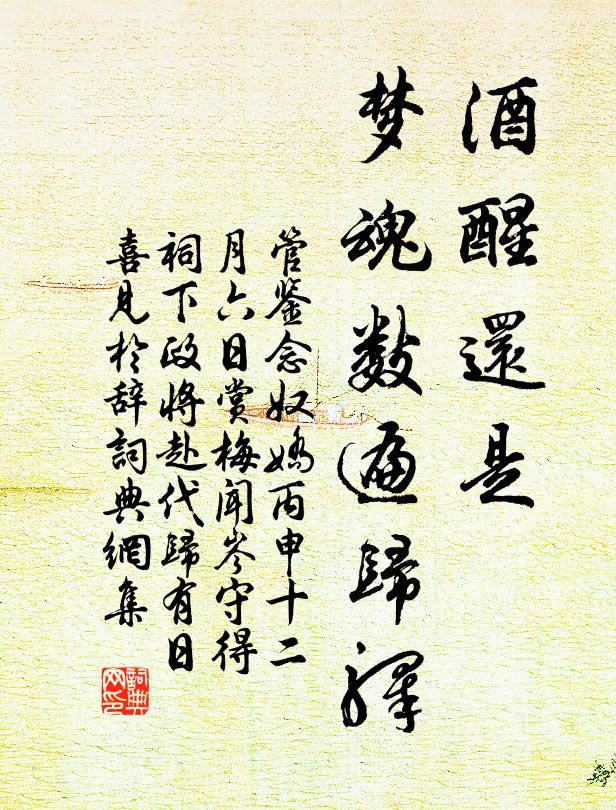 酒醒還是
梦魂数遍歸驛
管鉴念奴嬌丙申十二
月六日赏梅闻岑守得
祠下政将赴代歸有日
喜见於辞詞典網集
詞典
网印